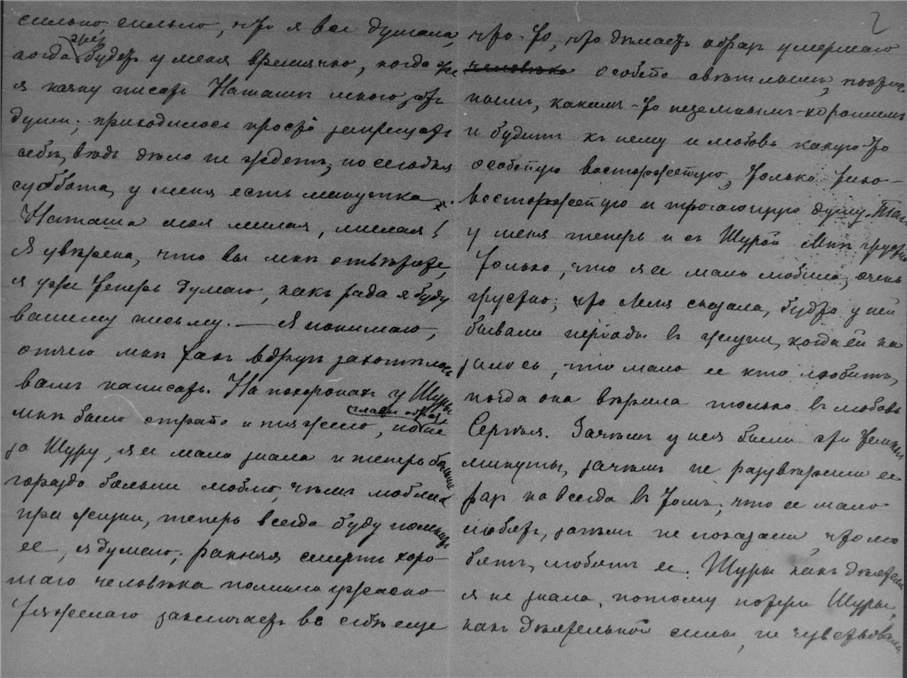 сильно сильно, что я вас думала,
когда будетъ у меня времячко, когда
я начну писать Наташѣ много отъ
души; приходилось просто запрещать
себѣ, вѣдь дѣло не ждетъ, но сегодня
суббота, у меня есть минутка
Наташа моя милая, милая!
Я увѣрена, что вы мнѣ отвѣтите,
я уже теперь думаю, какъ рада я буду
вашему письму. — Я понимаю,
отчего мнѣ такъ вдругъ захотѣлось
вамъ написать. На похоронахъ у Шуры
мнѣ было страшно и тяжело, главн. образ. не
за Шуру, я ее мало знала и теперь больше
гораздо больше люблю, чѣмъ любила
при жизни, теперь всегда буду помнить
ее, я думаю, ранняя смерть хоро-
шаго человѣка помимо ужасно
тяжелаго заключаетъ въ себѣ еще
2
что-то, что дѣлаетъ образъ умершаго
человѣка особенно свѣтлымъ,
какимъ-то неземнымъ-хорошимъ
и будитъ къ нему и любовь какую-то
особенную восторженную, только тихо-
восторженную и трогающую душу. Такъ
у меня теперь и съ Шурой. Мнѣ грустно
только, что я ее мало любила, очень
грустно; что Леля сказала, будто у ней
бывали періоды въ жизни, когда ей ка-
залось, что мало ее кто любитъ,
когда она вѣрила только въ любовь
Сергѣя. Зачѣмъ у нея были эти
минуты, зачѣмъ не разувѣрили ее
разъ навсегда въ томъ, что ее мало
любятъ, зачѣмъ не показали что лю-
бятъ, любятъ ее. Шуры какъ дѣятеля
я не знала, потому потери Шуры,
какъ дѣятельной силы, не чувствовала